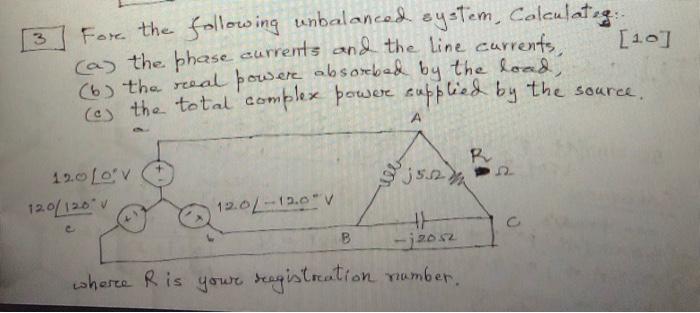 3 For the following unbalanced system, Calculate:- [10]
(a) the phase currents and the line currents,
(b) the real power absorbed by the load,
(c) the total complex power supplied by the source.
a A
120∠0° V + j5Ω R Ω
120∠120° V 120∠-120° V
c b B -j20Ω C
where R is your registration number.